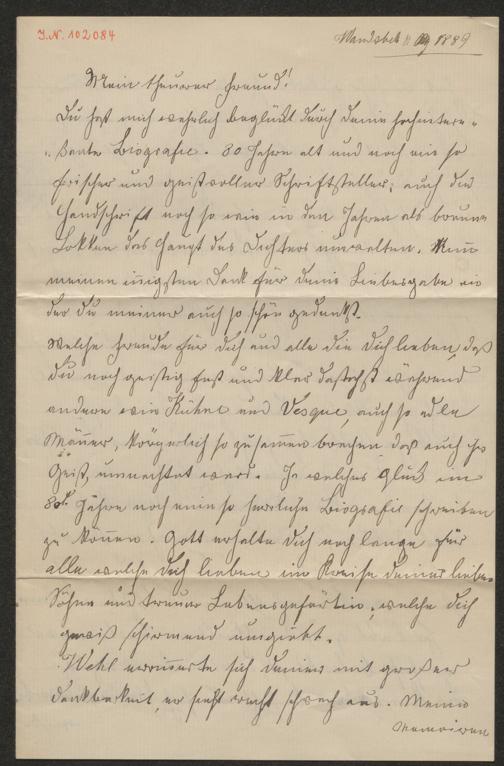 J.N. 102084
Wandsbek 1889
Mein theurer Freund!
Du hast mich wahrlich beglückt durch deine hochintere-
ßante Biografie. 80 Jahre alt und noch ein so
frischer und geistvoller Schriftsteller; auch die
Handschrift noch so wie in den Jahren als braune
Lokken das Haupt des Dichters umwallten.
meinen innigsten Dank für deine Liebesgabe in
der du meiner auch so schön gedenkst.
Welche Freude für dich und alle die dich lieben, daß
du noch geistig fest und klar dastehst während
andere wie Kühne und Vesque, auch so edle
Männer, körperlich so zusammen brechen daß auch ihr
Geist umnachtet ward. Ja welches Glück im
80t Jahre noch eine so herrliche Biografie schreiben
zu können. Gott erhalte dich noch lange für
alle welche dich lieben im Kreise deiner lieben
Söhne und treuen Lebensgefärtin, welche dich
gewiß schirmend umgiebt.
Wehl erinnerte sich deiner mit großer
Dankbarkeit, er sieht recht schwach aus. Meine
Memoiren